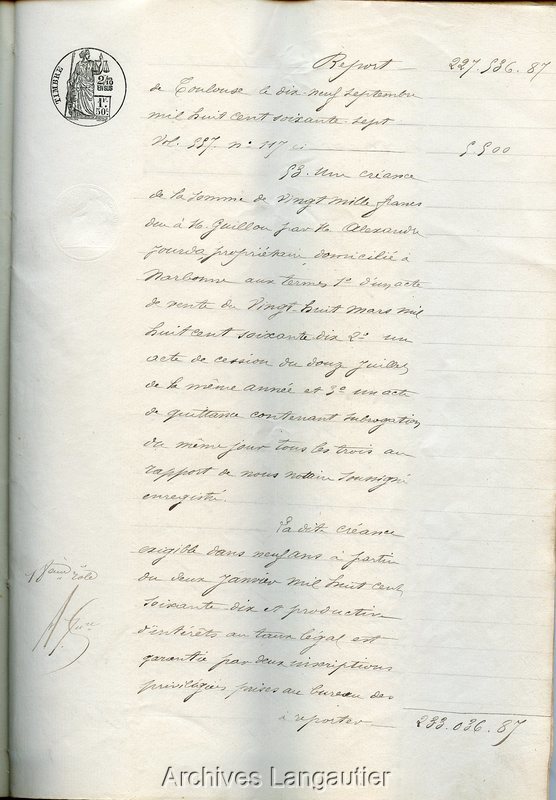 TIMBRE
Report 227.536.87
de Toulouse le dix-neuf septembre
mil huit cent soixante sept
Vol. 557. n° 117 ci 5.500
53. Une créance
de la somme de vingt mille francs
due à M. Guillou par M. Alexandre
Jourda propriétaire domicilié à
Narbonne aux termes 1° d'un acte
de vente du vingt huit mars mil
huit cent soixante dix 2° un
acte de cession du douz Juillet
de la même année et 3° un acte
de quittance contenant subrogation
du même jour tous les trois au
rapport de nous notaire soussigné
enregistré.
La dite créance
exigible dans neuf ans à partir
du deux Janvier mil huit cent
soixante dix et productive
d'intérêts au taux légal est
garantie par deux inscriptions
privilégiées prises au bureau des
à reporter 233.036.87
rôle
Archives Langautier